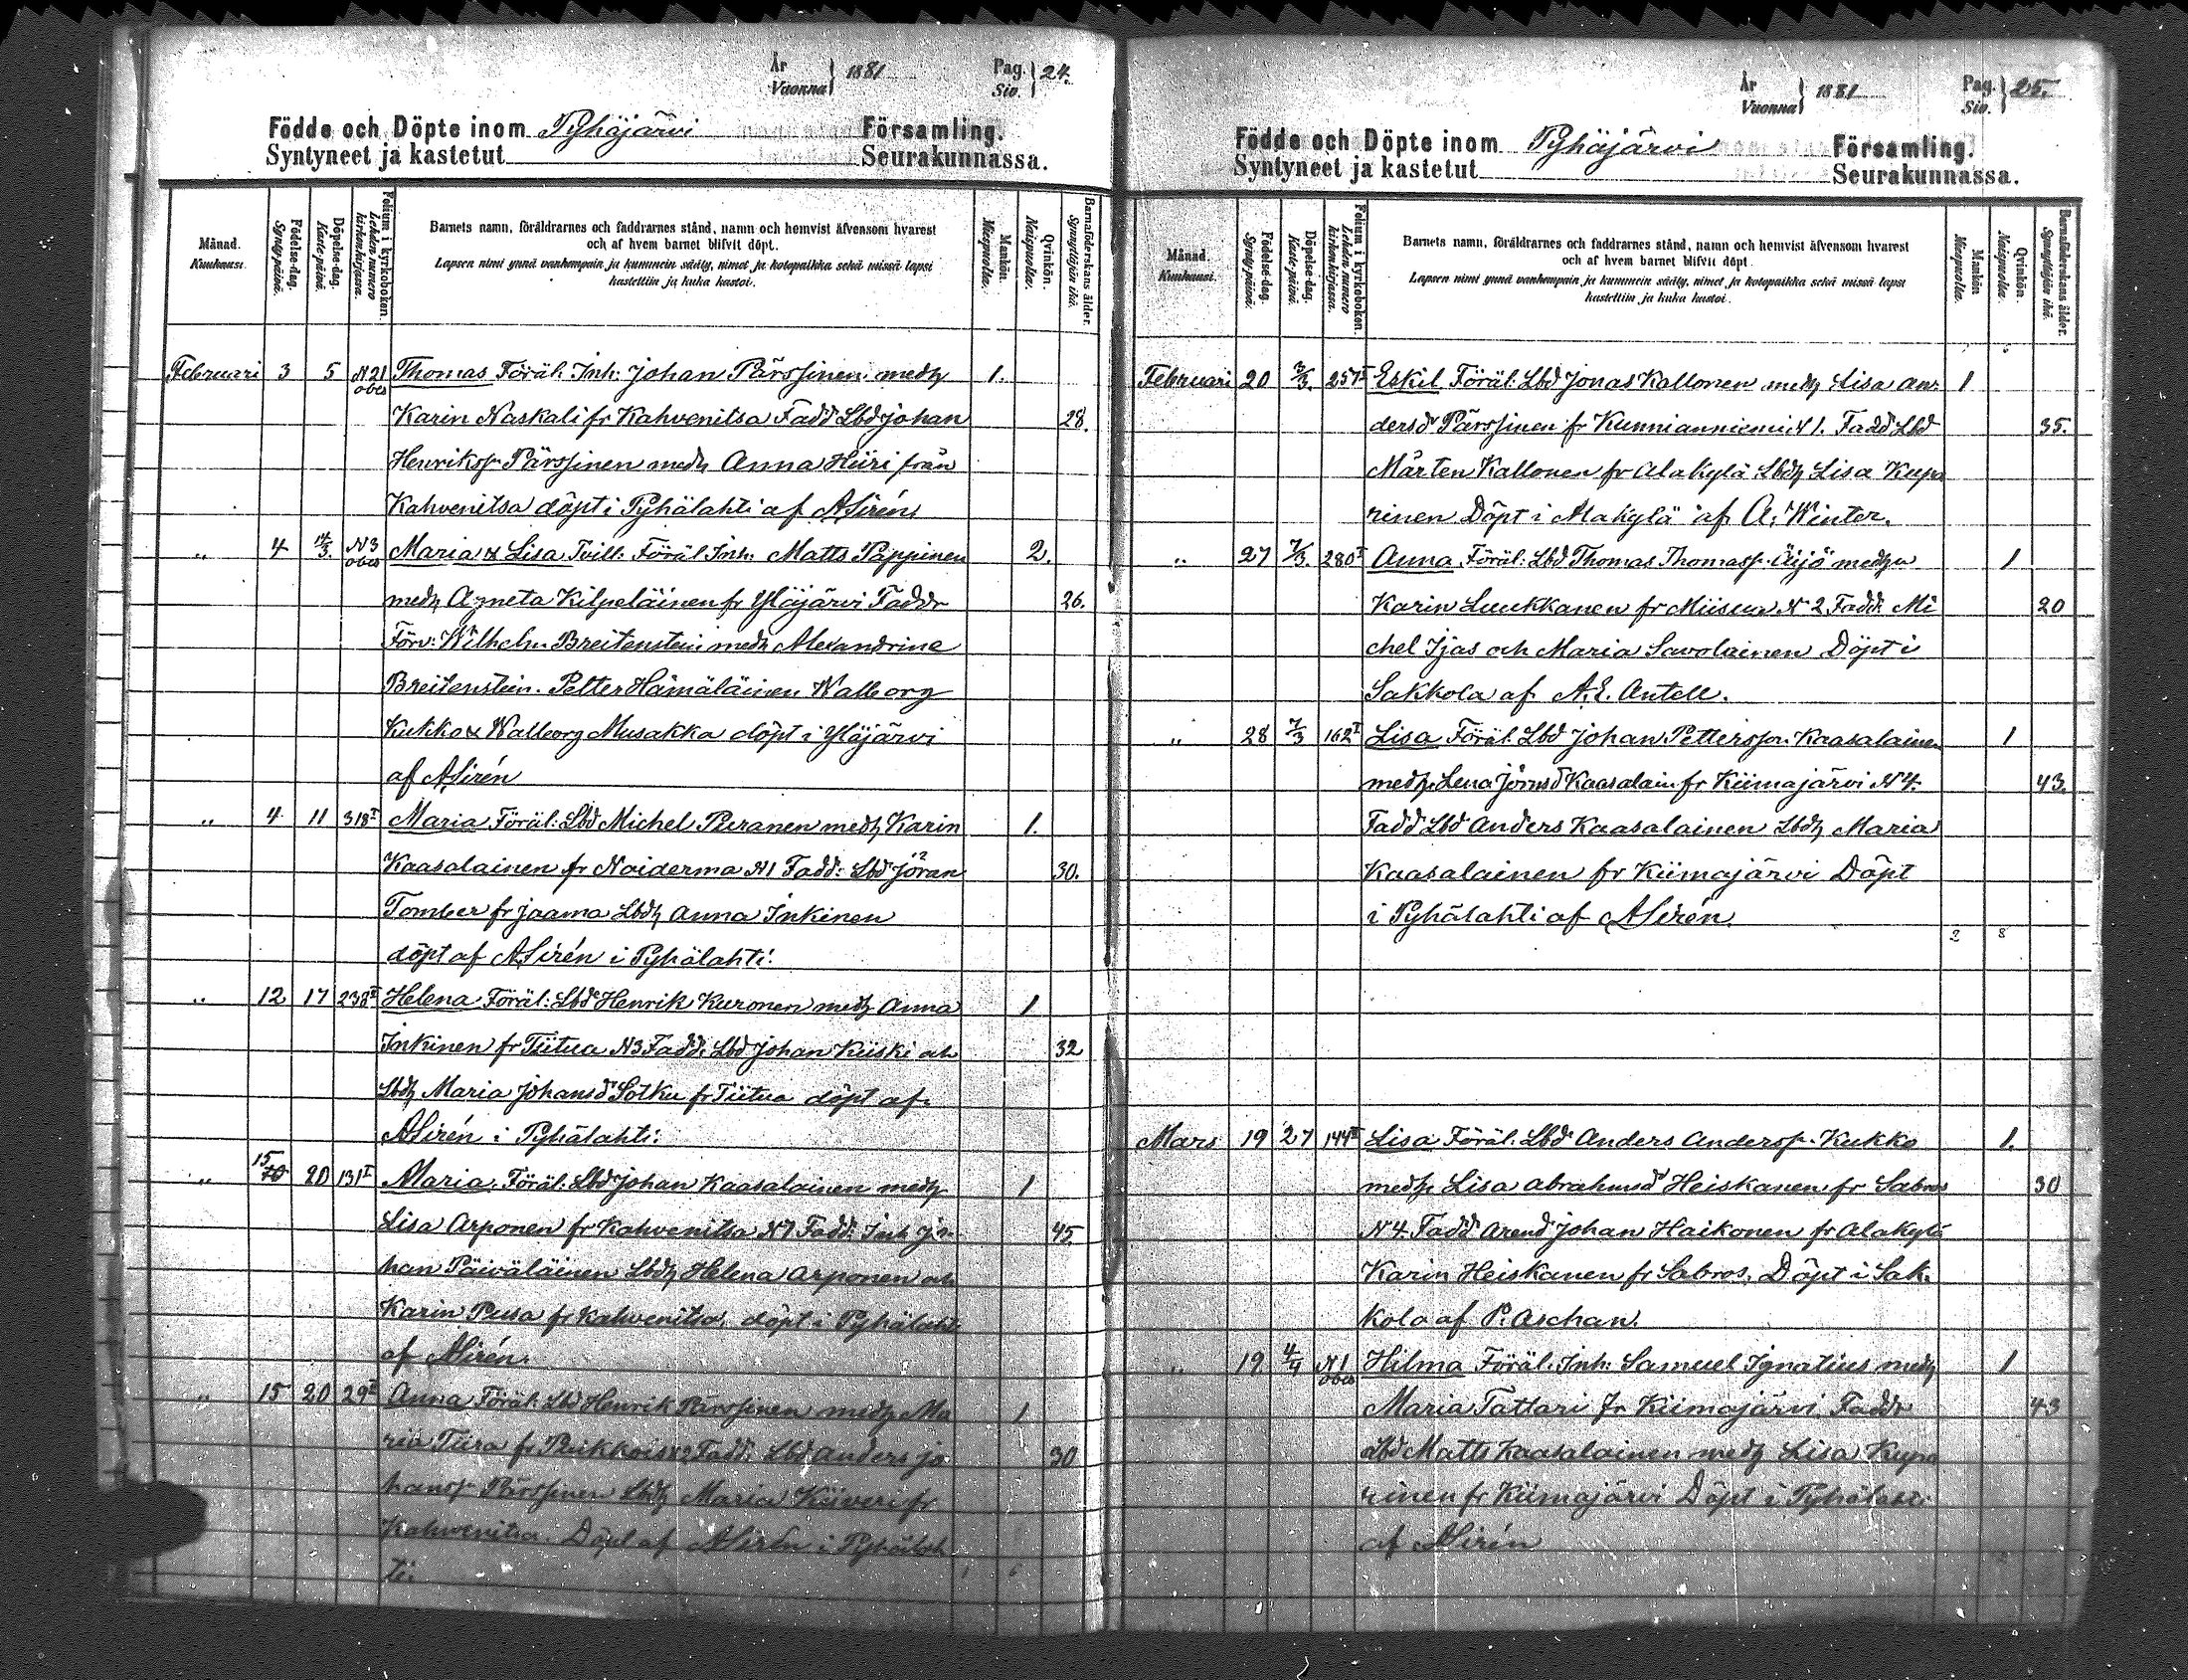 År
Vuonna } 1881 Pag.
Siv. } 24.
Födde och Döpte inom Pyhäjärvi Församling.
Syntyneet ja kastetut Seurakunnassa.
Månad.
Kuukausi.
Födelse-dag.
Synty-päivä.
Döpelse-dag.
Kaste-päivä.
Folium i kyrkoboken.
Lehden numero kirkonkirjassa.
Barnets namn, föräldrarnes och faddrarnes stånd, namn och hemvist äfvensom hvarest
och af hvem barnet blifvit döpt.
Lapsen nimi ynnä vanhempain ja kummein sääty, nimet ja kotopaikka sekä missä lapsi
kastettiin ja kuka kastoi.
Mankön.
Miespuolta.
Qvinkön.
Naispuolta.
Barnaföderskans ålder.
Synnyttäjän ikä.
Februari 3 5 N 21 obes Thomas Föräl. Inh: Johan Pärssinen medh 1.
Karin Naskali fr Kahvenitsa Fadd Lbd Johan 28.
Henrikss. Pärssinen medh Anna Hiiri från
Kahvenitsa döpt i Pyhälahti af A Sirén
„ 4 14/3. N 3 obes Maria & Lisa Tvill: Föräl Inh: Matts Pappinen 2.
medh Agneta Kilpeläinen fr Yläjärvi Faddr 26.
Förv: Wilhelm Breitenstein medh Alexandrine
Breitenstein. Petter Hämäläinen Walborg
Kukko & Walborg Musakka döpt i Yläjärvi
af A Sirén
„ 4 11 318 I Maria Föräl: Lbd Michel Peranen medh Karin 1.
Kaasalainen fr Noiderma N 1 Fadd: Lbd Jöran 30.
Tomber fr Jaama Lbdh Anna Inkinen
döpt af A Sirén i Pyhälahti.
„ 12 17 238 II Helena Föräl: Lbd Henrik Kuronen medh Anna 1
Inkinen fr Tiitua N 3 Fadd: Lbd Johan Kiiski och 32
Lbdh Maria Johansd Sotku fr Tiitua döpt af
A Sirén i Pyhälahti:
„ 15 20 131 I Maria Föräl: Lbd Johan Kaasalainen medh 1
Lisa Arponen fr Kahvenitsa N 7 Fadd: Inh Jo- 45.
han Päiväläinen Lbdh Helena Arponen och
Karin Pusa fr Kahvenitsa, döpt i Pyhälahti
af A Sirén.
„ 15 20 29 I Anna Föräl: Lbd Henrik Pärssinen medh Ma 1
ria Tiira fr Puikkois N 2 Fadd: Lbd Anders Jo 30
hanss Pärssinen Lbdh Maria Kiiveri fr
Kahvenitsa. Döpt af A Sirén i Pyhälah
ti.
År
Vuonna } 1881 Pag.
Siv. } 25.
Födde och Döpte inom Pyhäjärvi Församling.
Syntyneet ja kastetut Seurakunnassa.
Månad.
Kuukausi.
Födelse-dag.
Synty-päivä.
Döpelse-dag.
Kaste-päivä.
Folium i kyrkoboken.
Lehden numero kirkonkirjassa.
Barnets namn, föräldrarnes och faddrarnes stånd, namn och hemvist äfvensom hvarest
och af hvem barnet blifvit döpt.
Lapsen nimi ynnä vanhempain ja kummein sääty, nimet ja kotopaikka sekä missä lapsi
kastettiin ja kuka kastoi.
Mankön
Miespuolta.
Qvinkön.
Naispuolta.
Barnaföderskans ålder.
Synnyttäjän ikä.
Februari 20 3/3. 257 I Eskil Föräl: Lbd Jonas Kallonen medh Lisa An- 1
dersd Pärssinen fr Kunnianniemi N 1. Fadd Lbd 35.
Mårten Kallonen fr Alakylä Lbdh Lisa Kupa
rinen Döpt i Alakylä af A. Winter.
„ 27 7/3. 280 I Anna Föräl: Lbd Thomas Thomass. Äijö medh 1
Karin Luukkanen fr Miisua N 2 Fadd: Mi 20
chel Ijas och Maria Savolainen Döpt i
Sakkola af A. E. Antell.
„ 28 7/3 162 I Lisa Föräl. Lbd Johan Petterss. Kaasalainen 1
medh Lena Jörансd Kaasalain. fr Kiimajärvi N 4. 43.
Fadd Lbd Anders Kaasalainen Lbdh Maria
Kaasalainen fr Kiimajärvi Döpt
i Pyhälahti af A Sirén.
2 8
Mars 19 27 144 II Lisa Föräl. Lbd Anders Anderss. Kukko 1.
medh Lisa Abrahmsd Heiskanen fr Sabros 30
N 4. Fadd Arend Johan Haikonen fr Alakylä
Karin Heiskanen fr Sabros, Döpt i Sak-
kola af P. Aschan.
„ 19 4/4 N 1 obes Hilma Föräl. Inh: Samuel Ignatius medh 1
Maria Tattari fr Kiimajärvi Faddr 43
Lbd Matts Kaasalainen medh Lisa Kupa
rinen fr Kiimajärvi Döpt i Pyhälahti
af A Sirén